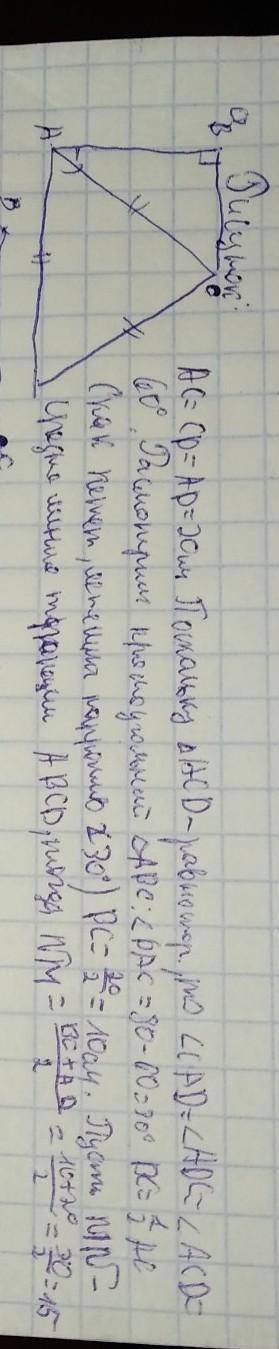 Рисунок:
B
C
A
B
C
AC = CD = AD = 20см Поскольку △ACD – равностор, то ∠CAD = ∠ADC = ∠ACD =
60°. Рассмотрим прямоугольный △ABC: ∠BAC = 90 - 60 = 30° BC = 1/2 AC
(как катет, лежащий напротив ∠30°) BC = 20/2 = 10см. Пусть MN –
средняя линия трапеции ABCD, тогда NM = BC + AD / 2 = 10 + 20 / 2 = 30/2 = 15